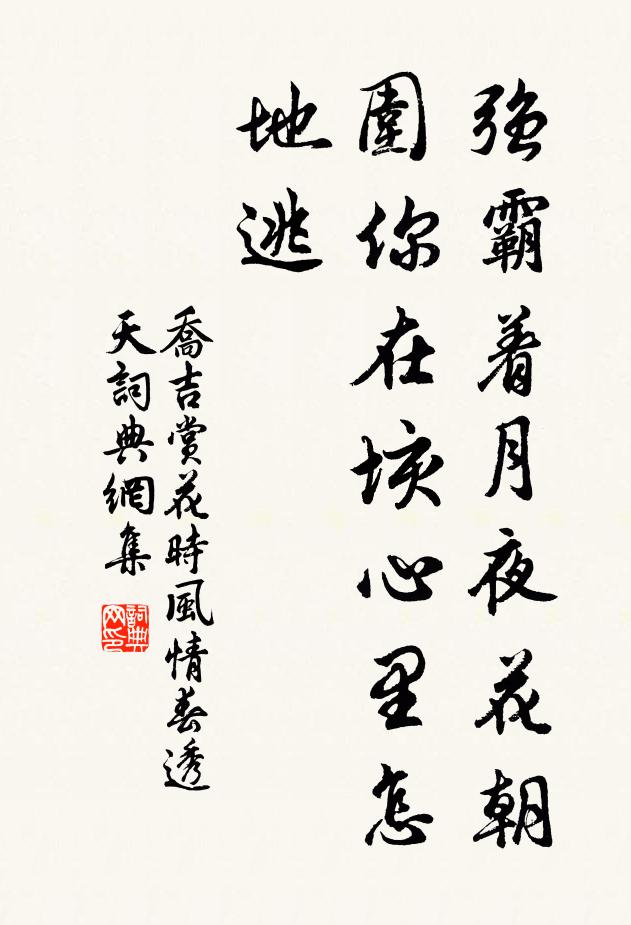 強霸着月夜花朝
圍你在垓心里怎
地逃
喬吉賞花時風情春透
天詞典網集
詞典网印